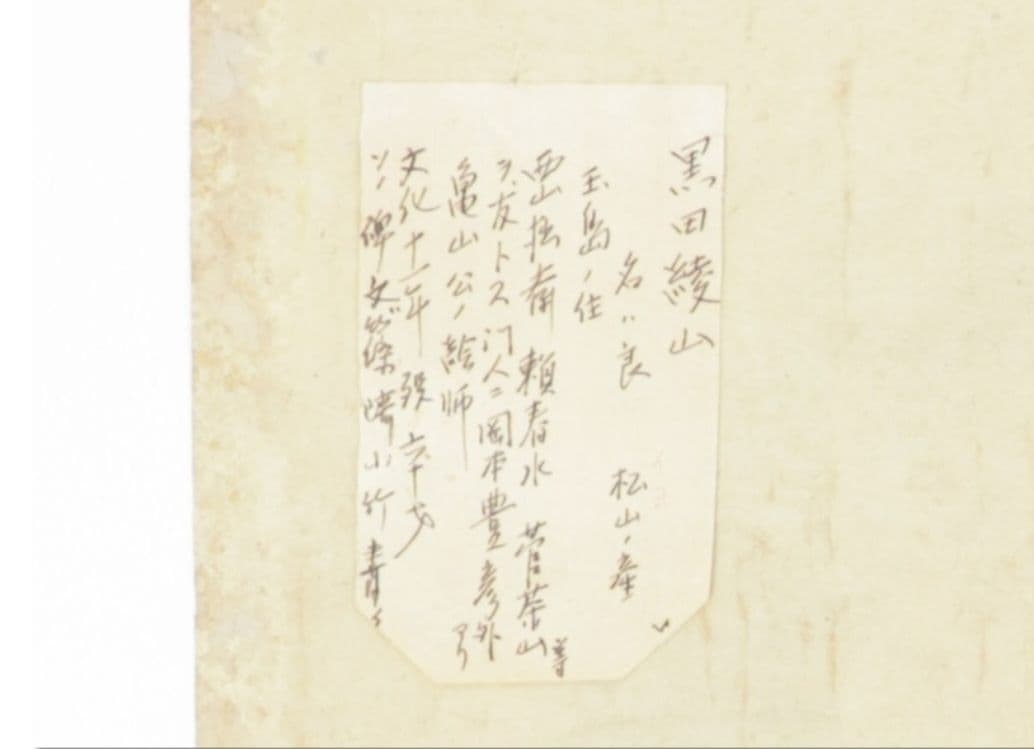 黒田綾山
名ハ良 松山ノ産
玉島ノ住
西山拙斎 頼春水 菅茶山等
ヲ友トス門人ニ岡本豊彦外アリ
亀山公ノ絵師
文化十一年歿六十才
ソノ碑文ハ篠崎小竹書ク